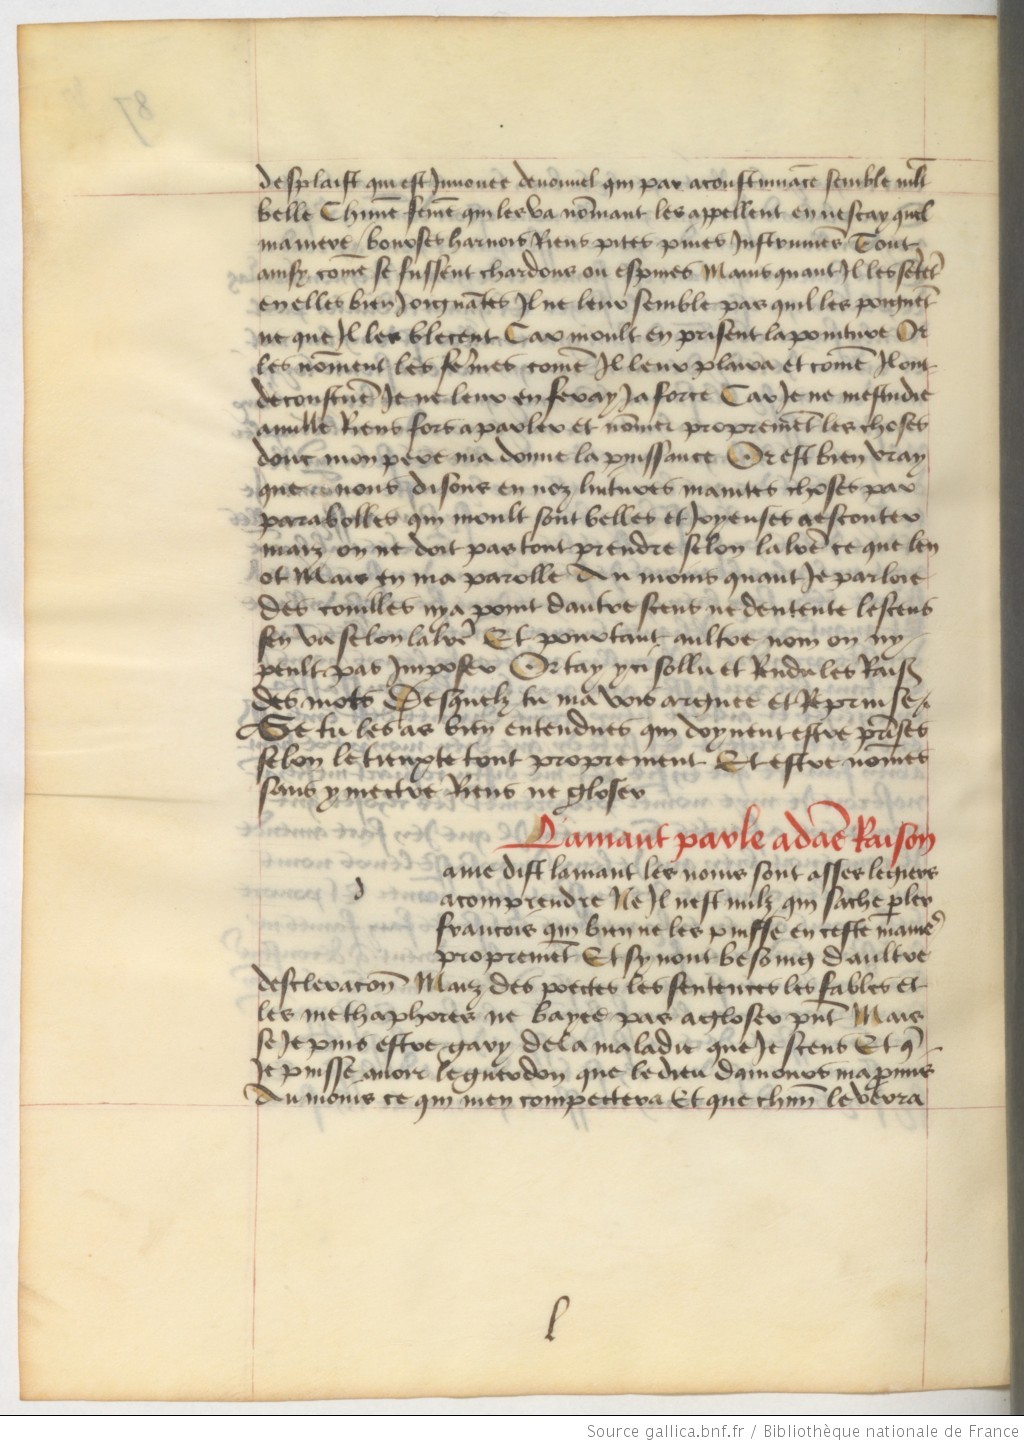 desplaist qui est Innouee de nouuel qui par acoustumāce semble mlt
belle Chūne fēme qui les va nōmant les appellent en ne scay quel
maniere bourses harnois Riens pites pines Instrumēs Tout
ainsy comē se fussent chardons ou espines Mais quant Il les sētēt
en elles bien Joignātes Il ne leur semble pas quil les poignēt
ne que Il les blecent Car moult en prisent la pointure Or
les nōment les fēmes comē Il leur plaira et comē Il ont
de coustuē Je ne leur en feray Ja force Car Je ne mestudie
a nulle Riens fors a parler et nōmer propremēt les choses
dont mon pere ma donne la puissance Or est bien vray
que nous disons en noz lictures maintes choses par
parabolles qui moult sont belles et Joyeuses a escouter
maiz on ne doit pas tout prendre selon la lrē ce que len
ot Mais en ma parolle Au moins quant Je parloie
des couilles nya point dautre scens ne dentente le scens
sen va selon la lrē Et pourtant aultre nom on ny
peult pas Imposer Or tay yci sollu et Rendu les Raisōs
des mots Desquelz tu ma vois arguee et Reprinse
Se tu les as bien entendues qui doyuent estre prinses
selon le tieuxte tout proprement Et estre nōmes
sans y mectre Riens ne gloser
Lamant parle a dāe Raison
d ame dist lamant les noms sont asses legiers
a comprendre Ne Il nest nulz qui sache p̄ler
francois qui bien ne les puisse en ceste maniē
propremēt Et sy nont besoing daultre
descleracōn Maiz des poetes les sentences les fables et
les methaphores ne bayee pas a gloser pn̄t Mais
se Je puis estre gary de la maladie que Je scens Et q̄
Je puisse auoir le guerdon que le dieu damours ma p̄mis
Au moins ce qui men compectera Et que chūn le verra
l
87
Source gallica.bnf.fr / Bibliothèque nationale de France